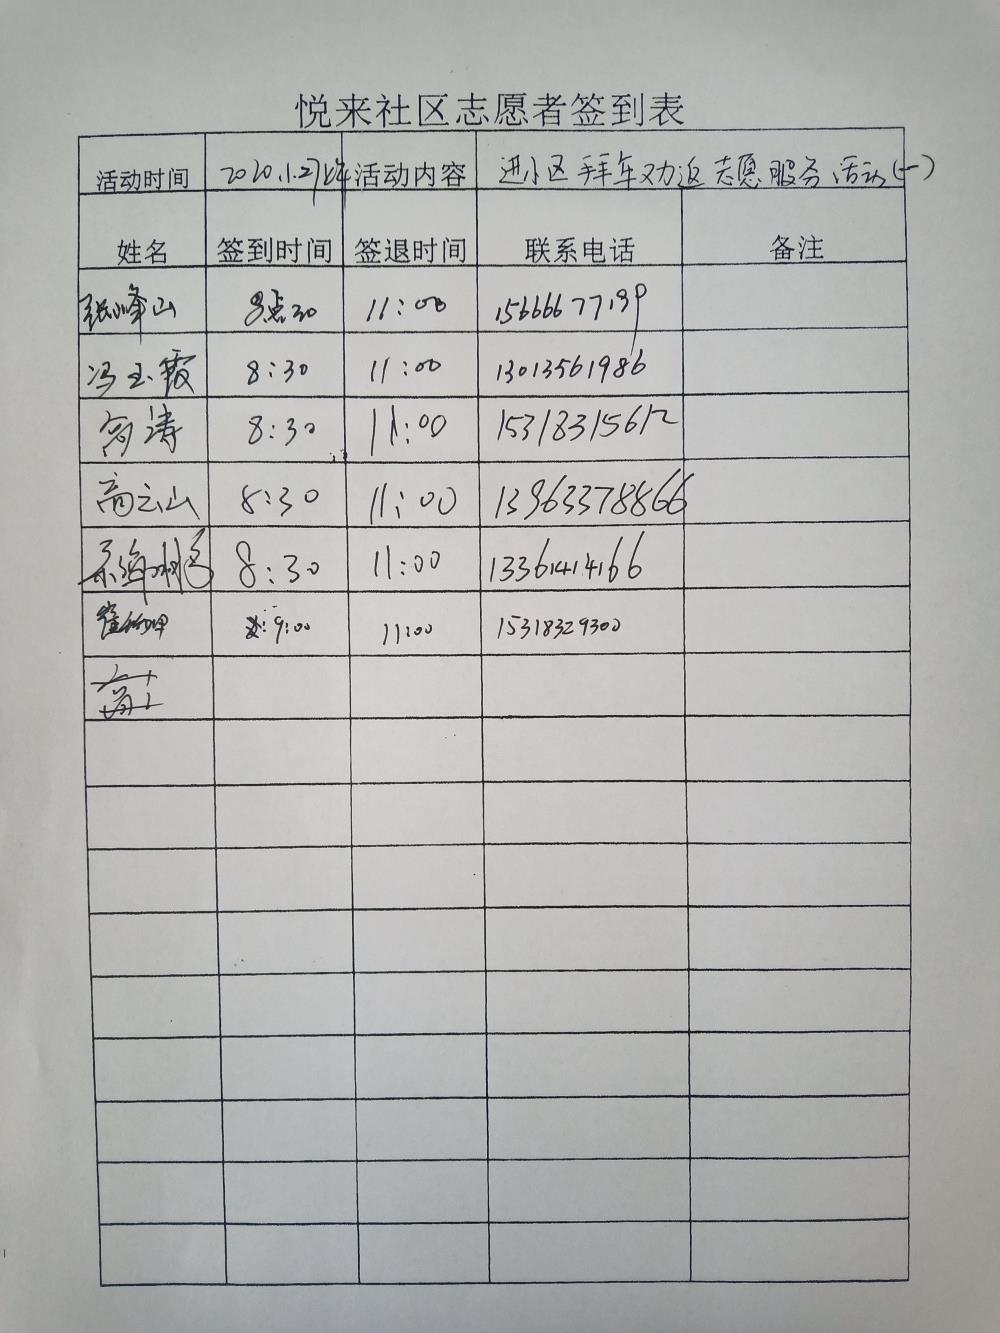 悦来社区志愿者签到表
活动时间 2020.1.27上午 活动内容 进小区拜年劝返志愿服务活动(一)
姓名 签到时间 签退时间 联系电话 备注
张峰山 8点30 11:00 15666677139
冯玉霞 8:30 11:00 13013561986
高涛 8:30 11:00 15318315612
高云山 8:30 11:00 13963378866
8:30 11:00 13361414166
9:00 11:00 15318329300